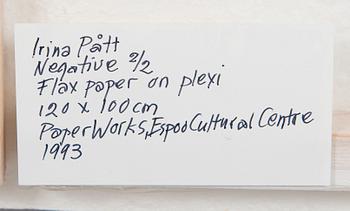 Irina Pått
Negative 2/2
Flax paper on plexi
120 x 100 cm
PaperWorks, Espoo Cultural Centre
1993